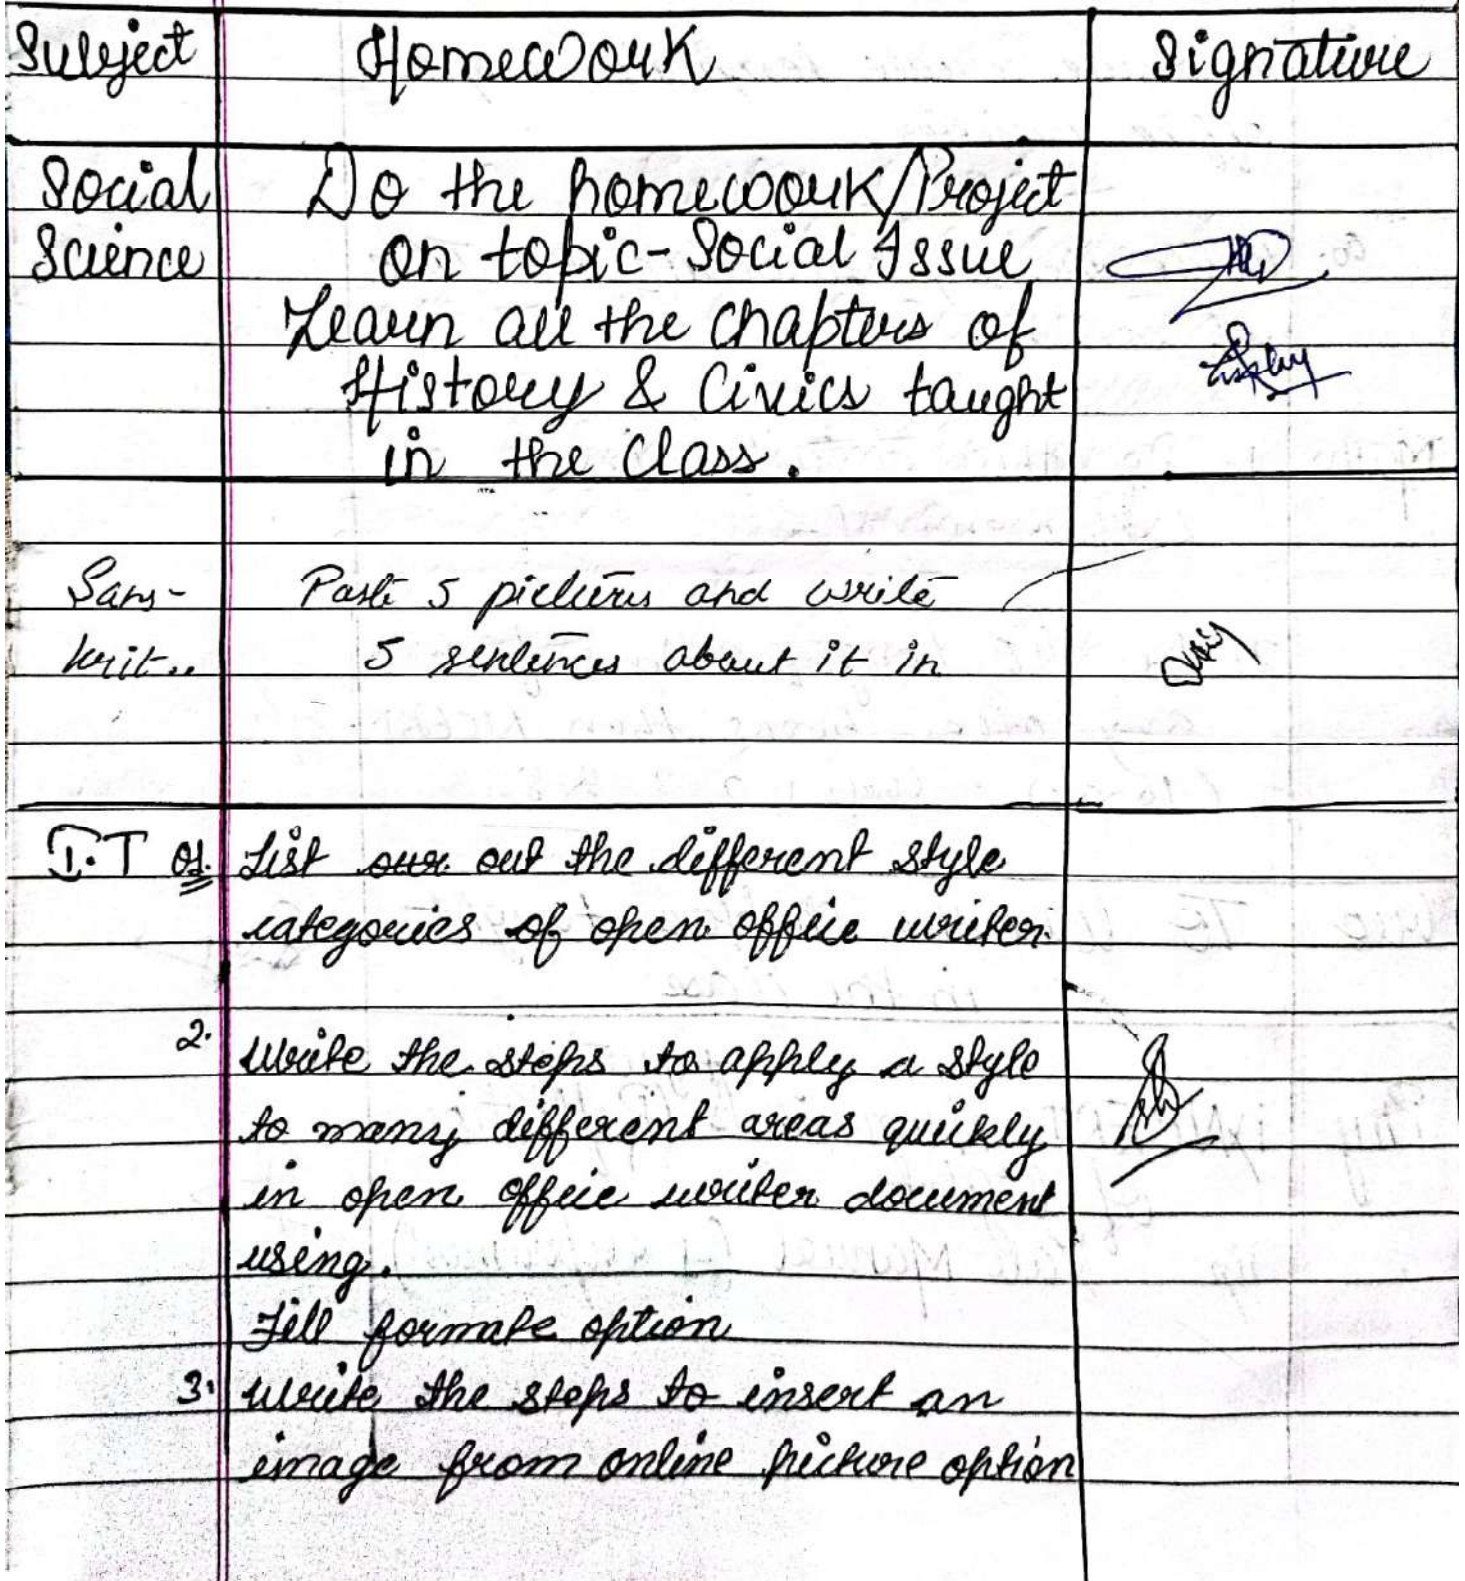 Subject Homework Signature
Social Do the homework/Project
Science on topic-Social Issue
Learn all the chapters of
History & Civics taught
in the class.
Sans- Paste 5 pictures and write
krit.. 5 sentences about it in
I.T Q1. List out the different style
categories of open office writer.
2. Write the steps to apply a style
to many different areas quickly
in open office writer document
using.
Fill formate option
3. Write the steps to insert an
image from online picture option